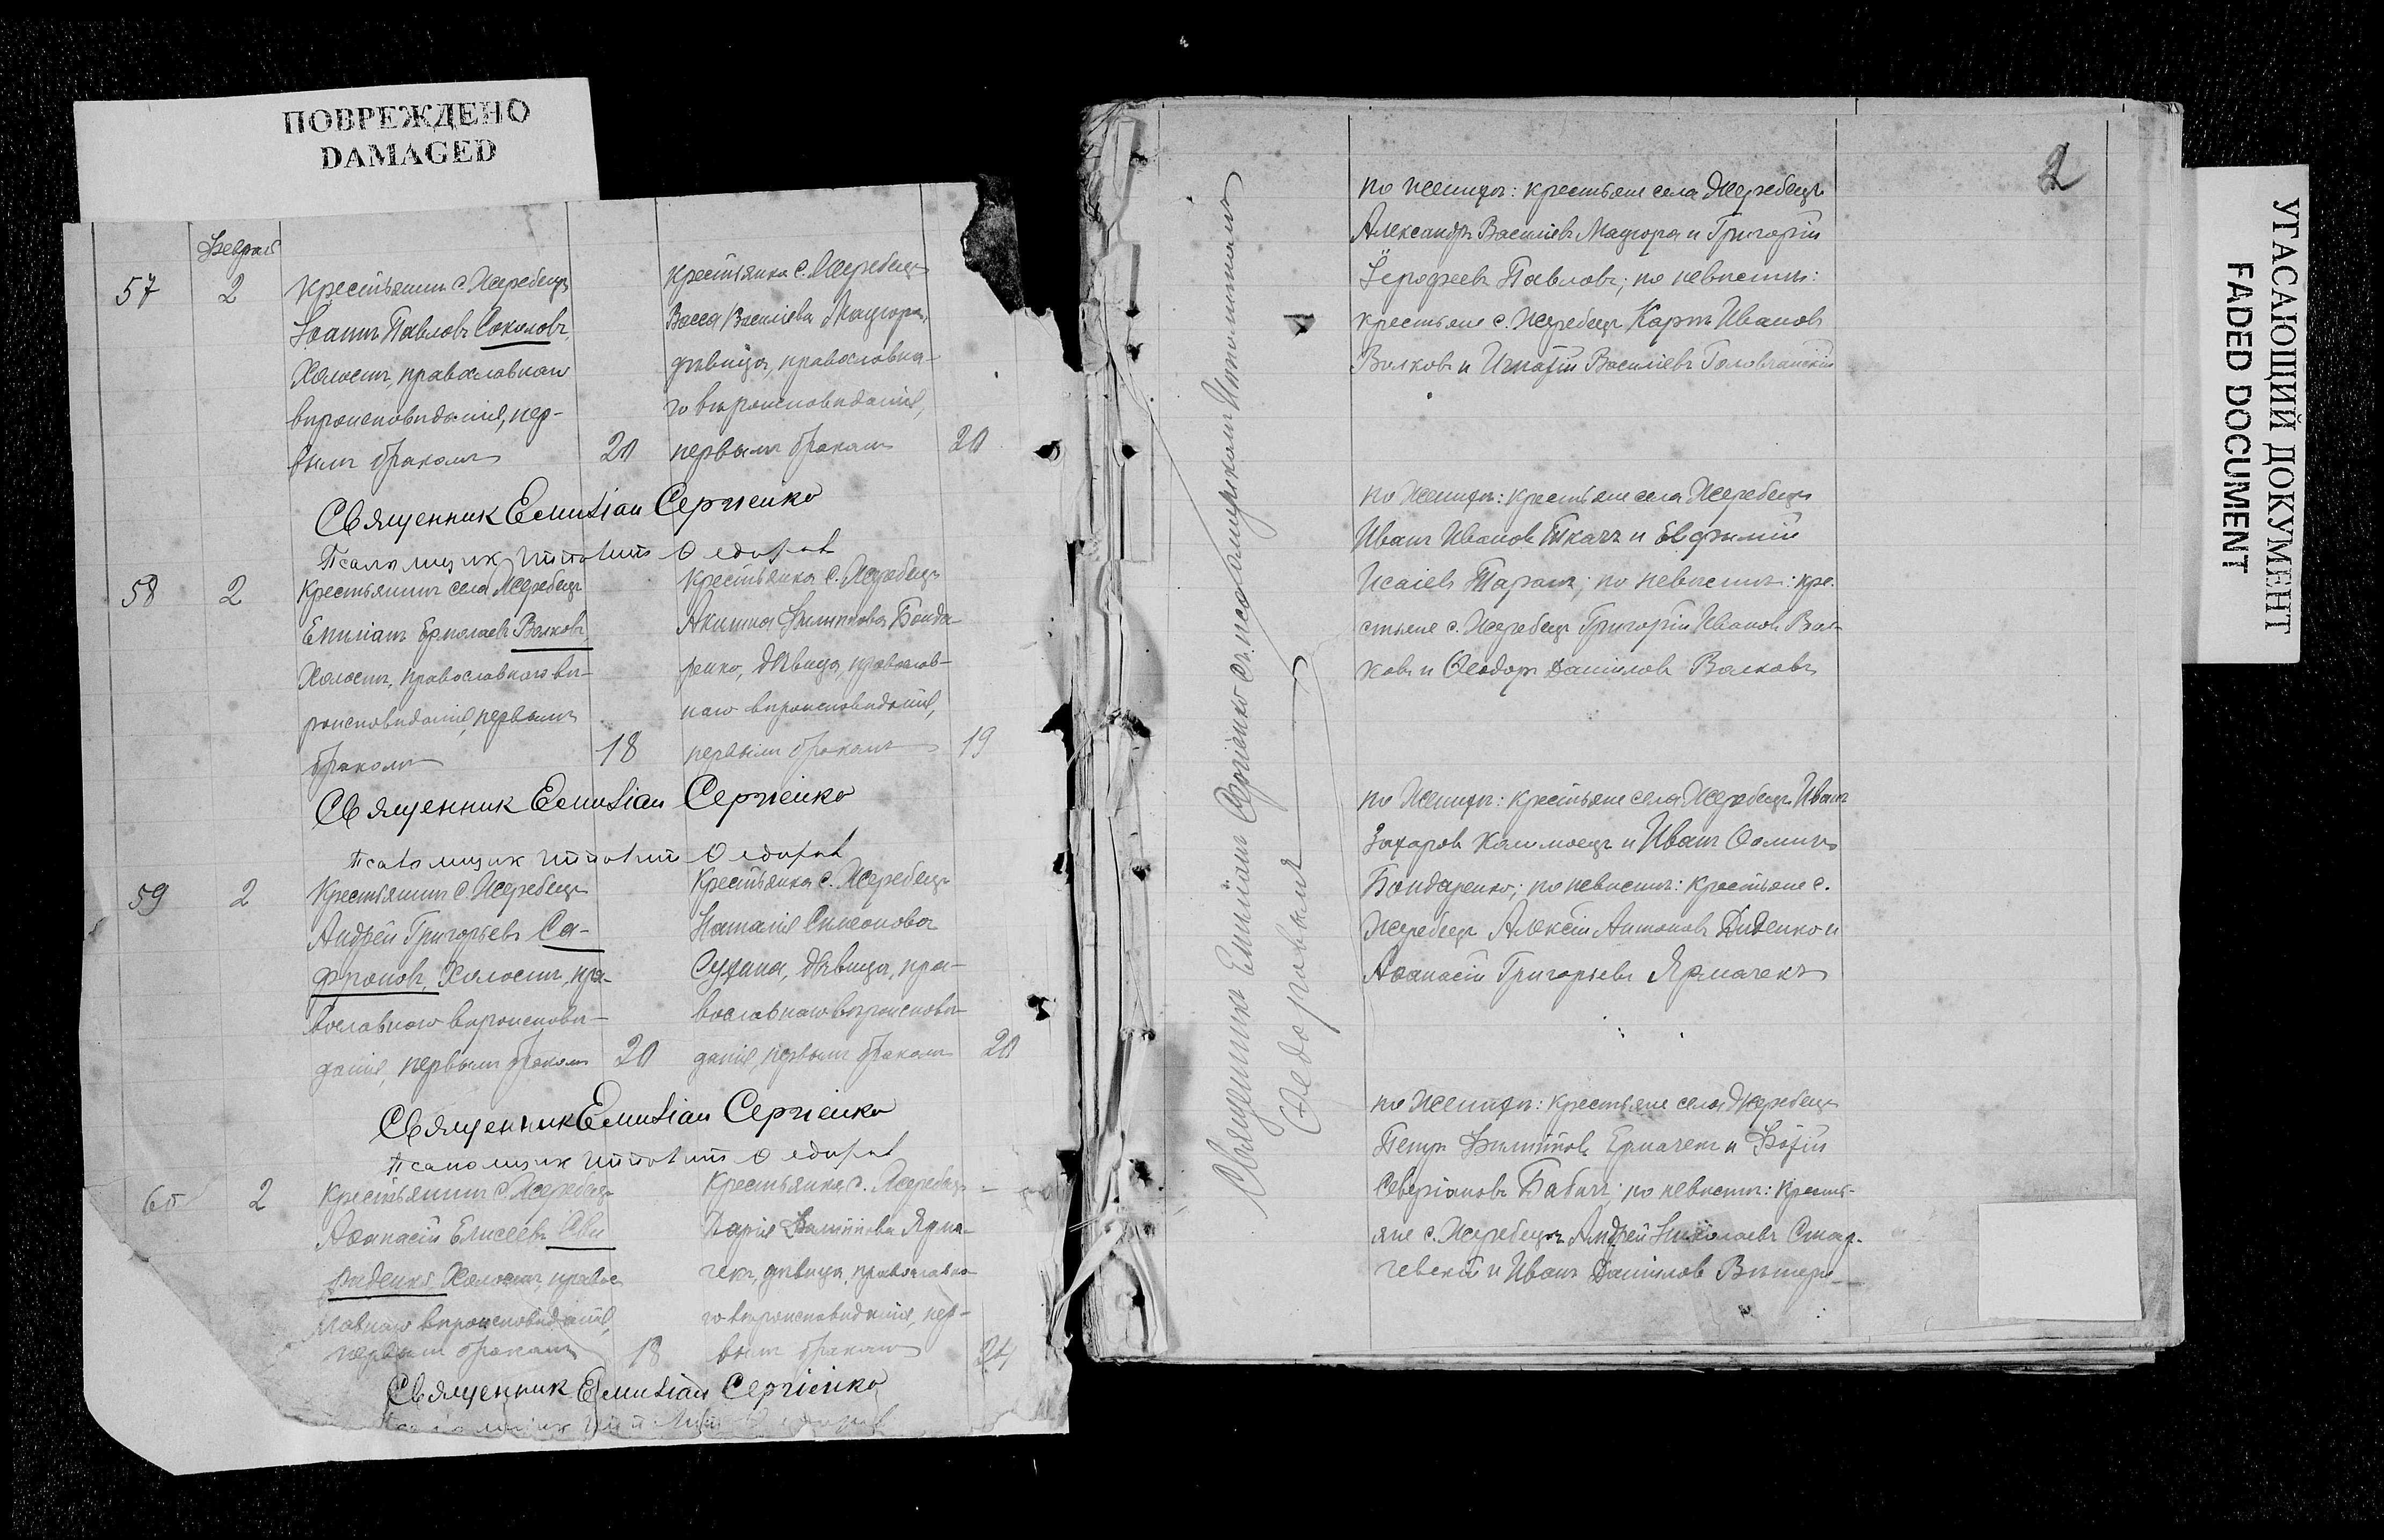 ПОВРЕЖДЕНО
DAMAGED
Февраль
57
2
Крестьянинъ с. Жеребецъ
Іоаннъ Павловъ Соколовъ,
Холостъ, православнаго
вѣроисповѣданія, пер-
вымъ бракомъ
20
Крестьянка с. Жеребецъ
Васса Васильева Мацюра,
дѣвица, православна-
го вѣроисповѣданія,
первымъ бракомъ
20
Священник Емилian Сергіенко
Псаломщик Ипполит Ѳедоров
58
2
Крестьянинъ села Жеребецъ
Емиліанъ Ермолаевъ Волковъ,
Холостъ, православнаго вѣ-
роисповѣданія, первымъ
бракомъ
18
Крестьянка с. Жеребецъ
Акилина Филиппова Бонда-
ренко, дѣвица, православ-
наго вѣроисповѣданія,
первымъ бракомъ
19
Священник Емилian Сергіенко
Псаломщик Ипполит Ѳедоров
59
2
Крестьянинъ с. Жеребецъ
Андрей Григорьевъ Са-
фроновъ, Холостъ, пра-
вославнаго вѣроисповѣ-
данія, первымъ бракомъ
20
Крестьянка с. Жеребецъ
Наталія Симеонова
Сухина, дѣвица, пра-
вославнаго вѣроисповѣ-
данія, первымъ бракомъ
20
Священник Емилian Сергіенко
Псаломщик Ипполит Ѳедоров
60
2
Крестьянинъ с. Жеребецъ
Аѳанасій Елисеевъ Сви-
риденко, Холостъ, правос-
лавнаго вѣроисповѣданія,
первымъ бракомъ
18
Крестьянка с. Жеребецъ
Дарія Филиппова Ярма-
чекъ, дѣвица, православна-
го вѣроисповѣданія, пер-
вымъ бракомъ
Священник Емилian Сергіенко
Псаломщик Ипполит Ѳедоров
Священникъ Емиліанъ Сергіенко съ псаломщикомъ Ипполитомъ
Ѳедоровымъ
2
по женихѣ: крестьяне села Жеребецъ
Александръ Васильевъ Мацюра и Григорій
Іерофеевъ Павловъ; по невѣстѣ:
крестьяне с. Жеребецъ Карпъ Ивановъ
Волковъ и Игнатій Васильевъ Головчанскій
по женихѣ: крестьяне села Жеребецъ
Иванъ Ивановъ Ткачъ и Евфимій
Исаіевъ Таранъ; по невѣстѣ: кре-
стьяне с. Жеребецъ Григорій Ивановъ Вол-
ковъ и Ѳеодоръ Даниловъ Волковъ
по женихѣ: крестьяне села Жеребецъ Иванъ
Захаровъ Калмыецъ и Иванъ Ѳоминъ
Бондаренко; по невѣстѣ: крестьяне с.
Жеребецъ Алексій Антоновъ Диденко и
Аѳанасій Григорьевъ Ярмачекъ
по женихѣ: крестьяне села Жеребецъ
Петръ Филипповъ Ермачекъ и Фотій
Северіановъ Бабичъ; по невѣстѣ: кресть-
яне с. Жеребецъ Андрей Николаевъ Стар-
чевскій и Иванъ Даниловъ
УГАСАЮЩИЙ ДОКУМЕНТ
FADED DOCUMENT